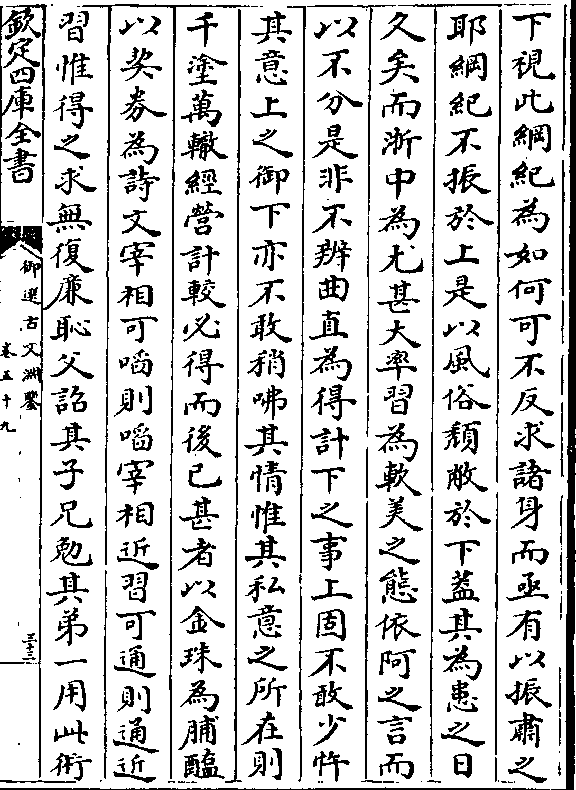 下視此綱紀為如何可不反求諸身而亟有以振肅之
耶綱紀不振於上是以風俗頹敝於下蓋其為患之日
久矣而浙中為尤甚大率習為軟美之態依阿之言而
以不分是非不辨曲直為得計下之事上固不敢少忤
其意上之御下亦不敢稍咈其情惟其私意之所在則
千塗萬轍經營計較必得而後已甚者以金珠為脯醢
以契劵為詩文宰相可啗則啗宰相近習可通則通近
習惟得之求無復廉恥父詔其子兄勉其弟一用此術
欽定四庫全書
御選古文淵鑒
卷五十九
三十三